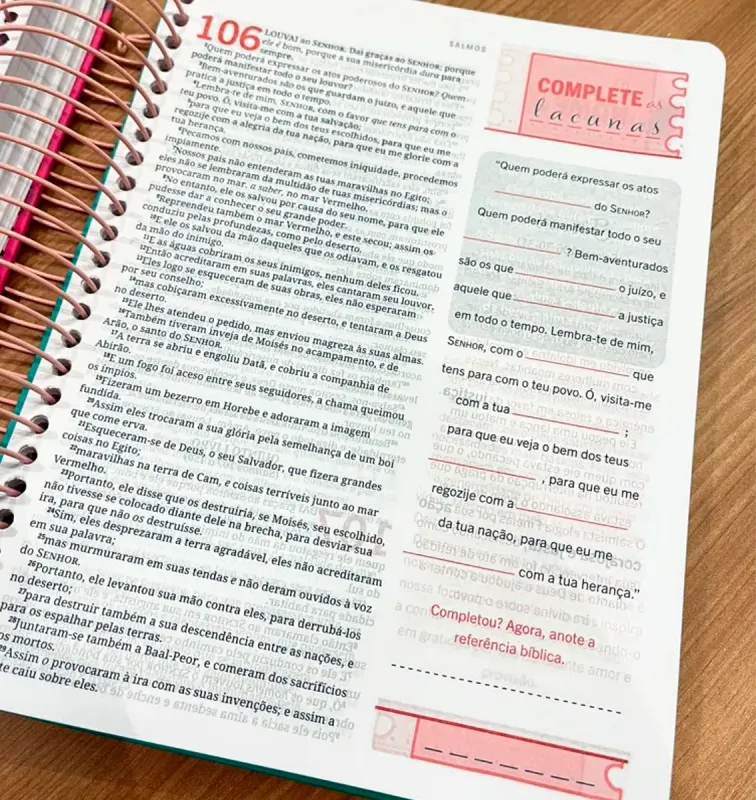 SALMOS
106 LOUVAI ao SENHOR. Dai graças ao SENHOR; porque
ele é bom, porque a sua misericórdia dura para
sempre.
²Quem poderá expressar os atos poderosos do SENHOR? Quem
poderá manifestar todo o seu louvor?
³Bem-aventurados são os que guardam o juízo, e aquele que
pratica a justiça em todo o tempo.
⁴Lembra-te de mim, SENHOR, com o favor que tens para com o
teu povo. Ó, visita-me com a tua salvação;
⁵para que eu veja o bem dos teus escolhidos, para que eu me
regozije com a alegria da tua nação, para que eu me glorie com a
tua herança.
⁶Pecamos com nossos pais, cometemos iniquidade, procedemos
impiamente.
⁷Nossos pais não entenderam as tuas maravilhas no Egito;
eles não se lembraram da multidão de tuas misericórdias; mas o
provocaram no mar, a saber, no mar Vermelho.
⁸No entanto, ele os salvou por causa do seu nome, para que ele
pudesse dar a conhecer o seu grande poder.
⁹Repreendeu também o mar Vermelho, e este secou; assim os
conduziu pelas profundezas, como pelo deserto.
¹⁰E ele os salvou da mão daqueles que os odiavam, e os resgatou
da mão do inimigo.
¹¹E as águas cobriram os seus inimigos, nenhum deles ficou.
¹²Então acreditaram em suas palavras, eles cantaram seu louvor.
¹³Eles logo se esqueceram de suas obras, eles não esperaram
por seu conselho;
¹⁴mas cobiçaram excessivamente no deserto, e tentaram a Deus
no deserto.
¹⁵Ele lhes atendeu o pedido, mas enviou magreza às suas almas.
¹⁶Também tiveram inveja de Moisés no acampamento, e de
Arão, o santo do SENHOR.
¹⁷A terra se abriu e engoliu Datã, e cobriu a companhia de
Abirão.
¹⁸E um fogo foi aceso entre seus seguidores, a chama queimou
os ímpios.
¹⁹Fizeram um bezerro em Horebe e adoraram a imagem
fundida.
²⁰Assim eles trocaram a sua glória pela semelhança de um boi
que come erva.
²¹Esqueceram-se de Deus, o seu Salvador, que fizera grandes
coisas no Egito;
²²maravilhas na terra de Cam, e coisas terríveis junto ao mar
Vermelho.
²³Portanto, ele disse que os destruiria, se Moisés, seu escolhido,
não tivesse se colocado diante dele na brecha, para desviar sua
ira, para que não os destruísse.
²⁴Sim, eles desprezaram a terra agradável, eles não acreditaram
em sua palavra;
²⁵mas murmuraram em suas tendas e não deram ouvidos à voz
do SENHOR.
²⁶Portanto, ele levantou sua mão contra eles, para derrubá-los
no deserto;
²⁷para destruir também a sua descendência entre as nações, e
para os espalhar pelas terras.
²⁸Juntaram-se também a Baal-Peor, e comeram dos sacrifícios
os mortos.
²⁹Assim o provocaram à ira com as suas invenções; e assim a
te caiu sobre eles.
COMPLETE as
lacunas
"Quem poderá expressar os atos
____________ do SENHOR?
Quem poderá manifestar todo o seu
____________ ? Bem-aventurados
são os que ____________ o juízo, e
aquele que ____________ a justiça
em todo o tempo. Lembra-te de mim,
SENHOR, com o ____________ que
tens para com o teu povo. Ó, visita-me
com a tua ____________ ;
para que eu veja o bem dos teus
____________ , para que eu me
regozije com a ____________
da tua nação, para que eu me
____________ com a tua herança."
Completou? Agora, anote a
referência bíblica.